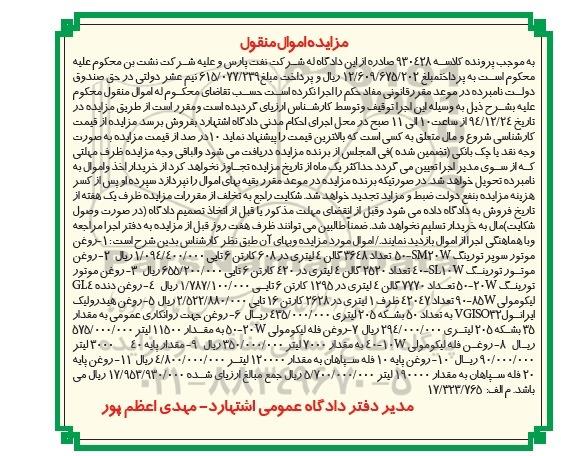 مزایده اموال منقول
به موجب پرونده کلاسه ۹۳۰۴۲۸ صادره از این دادگاه له شرکت نفت پارس و علیه شرکت نشت بن محکوم علیه
محکوم است به پرداختمبلغ ۱۲/۶۰۹/۶۷۵/۲۰۲ ریال و پرداخت مبلغ ۶۱۵/۰۷۷/۳۳۹ نیم عشر دولتی در حق صندوق
دولت نامبرده در موعد مقرر قانونی مفاد حکم را اجرا نکرده است حسب تقاضای محکوم له اموال منقول محکوم
علیه بشرح ذیل به وسیله این اجرا توقیف وتوسط کارشناس ارزیابی گردیده است ومقرر است از طریق مزایده در
تاریخ ۹۴/۱۲/۲۴ از ساعت ۱۰ الی ۱۱ صبح در محل اجرای احکام مدنی دادگاه اشتهارد بفروش برسد مزایده از قیمت
کارشناسی شروع و مال متعلق به کسی است که بالاترین قیمت را پیشنهاد نماید ۱۰ در صد از قیمت مزایده به صورت
وجه نقد یا چک بانکی (تضمین شده )فی المجلس از برنده مزایده دریافت می شود والباقی وجه مزایده ظرف مهلتی
که از سوی مدیر اجرا تعیین می گردد حداکثر یک ماه از تاریخ مزایده تجاوز نخواهد کرد از خریدار اخذ واموال به
نامبرده تحویل خواهد شد. در صورتیکه برنده مزایده در موعد مقرر بقیه بهای اموال را نپردازد سپرده او پس از کسر
هزینه مزایده بنفع دولت ضبط و مزاید تجدید خواهد شد. شکایت راجع به تخلف از مقررات مزایده ظرف یک هفته از
تاریخ فروش به دادگاه داده می شود وقبل از انقضای مهلت مذکور یا قبل از اتخاذ تصمیم دادگاه (در صورت وصول
شکایت)مال به خریدار تسلیم نخواهد شد. ضمنا طالبین می توانند ظرف هفت روز قبل از مزایده به دفتر اجرا مراجعه
وبا هماهنگی اجرا از اموال بازدید نمایند./ اموال مورد مزایده وبهای آن طبق نظر کارشناس بدین شرح است: ۱- روغن
موتور سوپر تورینگ ۵۰-SM۲۰W تعداد ۳۶۴۸ گالن ۴ لیتری در ۶۰۸ کارتن ۶ تایی ۱/۰۹۴/۴۰۰/۰۰۰ ریال ۲- روغن
موتور تورینگ ۴۰-SL۱۰W تعداد ۲۵۲۰ گالن ۴ لیتری در ۴۲۰ کارتن ۶ تایی ۶۵۵/۲۰۰/۰۰۰ ریال ۳- روغن موتور
تورینگ ۵۰-۲۰W تعداد ۷۷۷۰ گالن ۴ لیتری در ۱۲۹۵ کارتن ۶ تایی ۱/۷۸۷/۱۰۰/۰۰۰ ریال ۴- روغن دنده GL۴
لیکومولی ۹۰-۸۵W تعداد ۴۲۰۴۷ ظرف ۱ لیتری در ۲۶۲۸ کارتن ۱۶ تایی ۲/۵۲۲/۸۸۰/۰۰۰ ریال ۵- روغن هیدرولیک
ایرانول VGISO۳۲ به تعداد ۵۰ بشکه ۲۰۵ لیتری ۴۳۵/۰۰۰/۰۰۰ ریال ۶- روغن جهت روانکاری عمومی به مقدار
۳۵ بشکه ۲۰۵ لیتری ۲۹۴/۰۰۰/۰۰۰ ریال ۷- روغن فله لیکومولی ۵۰-۲۰W به مقدار ۱۱۵۰۰ لیتر ۵۷۵/۰۰۰/۰۰۰
ریال ۸- روغن فله لیکومولی ۴۰-۱۰W به مقدار ۷۰۰۰ لیتر ۳۵۰/۰۰۰/۰۰۰ ریال ۹- مقدار پایه ۴۰ ۳۰۰۰ لیتر
۹۰/۰۰۰/۰۰۰ ریال ۱۰- روغن پایه ۱۰ فله سپاهان به مقدار ۱۲۰۰۰۰ لیتر ۴/۸۰۰/۰۰۰/۰۰۰ ریال ۱۱- روغن پایه
۲۰ فله سپاهان به مقدار ۱۹۰۰۰۰ لیتر ۵/۷۰۰/۰۰۰/۰۰۰ ریال جمع مبالغ ارزیابی شده ۱۷/۹۵۳/۹۳۰/۰۰۰ ریال می
باشد. م الف: ۱۷/۳۲۳/۷۶۵
مدیر دفتر دادگاه عمومی اشتهارد- مهدی اعظم پور
۰۲۱-۸۸۳۴۹۶۷۰-۵